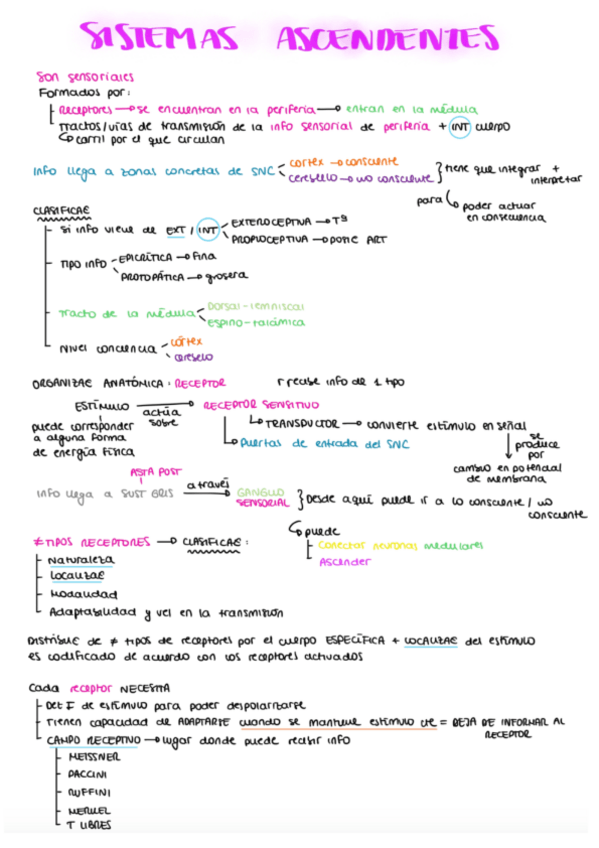 SISTEMAS ASCENDENTES
Son sensoriales
Formados por:
Receptores → se encuentran en la periferia → entran en la médula
Tractos/vías de transmisión de la info sensorial de periferia + INT cuerpo
↳ carril por el que circulan
Info llega a zonas concretas de SNC
cortex → consciente
cerebello → no consciente
tiene que integrar + interpretar
para
poder actuar en consecuencia
CLASIFICAE
Si info viene de EXT / INT
EXTEROCEPTIVA → Tª
PROPIOCEPTIVA → posic ART
TIPO INFO
EPICRÍTICA → Fina
PROTOPÁTICA → grosera
Tracto de la médula
Dorsal-lemniscal
Espino-talámica
Nivel conciencia
córtex
cerebelo
ORGANIZAE ANATÓMICA: RECEPTOR
r recibe info de 1 tipo
ESTÍMULO
actúa sobre
RECEPTOR SENSITIVO
puede corresponder
a alguna forma
de energía física
↳ TRANSDUCTOR → convierte estímulo en señal
↳ Puertas de entrada del SNC
se produce por
cambio en potencial
de membrana
ASTA POST
Info llega a SUST GRIS
a través
GANGLIO
SENSORIAL
Desde aquí puede ir a lo consciente / no
consciente
↳ puede
Conectar neuronas medulares
Ascender
≠ TIPOS RECEPTORES → CLASIFICAE:
Naturaleza
Localizae
Modalidad
Adaptabilidad y vel en la transmisión
Distribuc de ≠ tipos de receptores por el cuerpo ESPECÍFICA + LOCALIZAE del estímulo
es codificado de acuerdo con los receptores activados
Cada receptor NECESITA
Det I de estímulo para poder despolarizarse
Tienen capacidad de ADAPTARSE cuando se mantiene estímulo cte = DEJA DE INFORMAR AL
RECEPTOR
CAMPO RECEPTIVO → lugar donde puede recibir info
MEISSNER
PACCINI
RUFFINI
MERKEL
T LIBRES